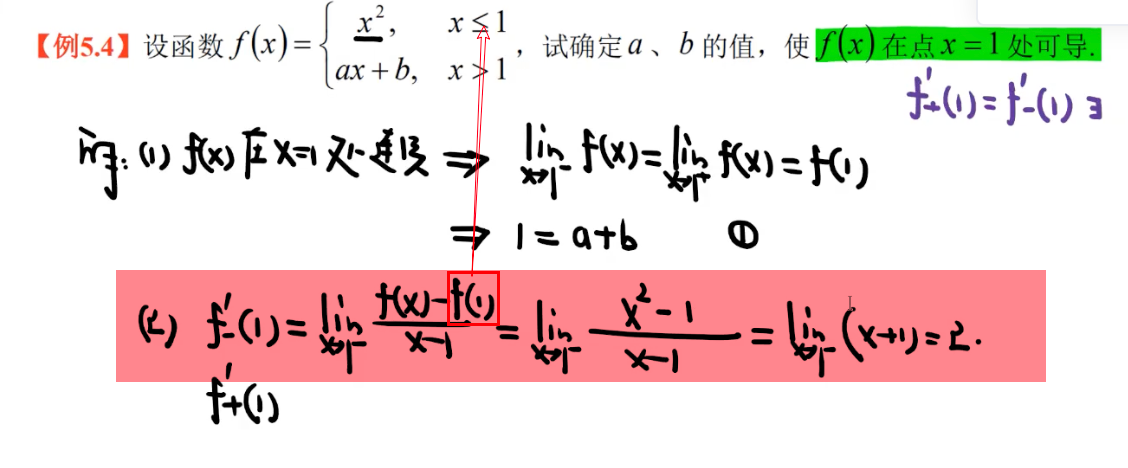 【例5.4】设函数 f(x)={ x², x≤1
ax+b, x>1 ，试确定 a、b 的值，使 f(x) 在点 x=1 处可导.
f'₊(1)=f'₋(1) ∃
解: (1) f(x)在x=1处连续 ⇒ lim_{x→1⁻} f(x)=lim_{x→1⁺} f(x)=f(1)
⇒ 1=a+b ①
(2) f'₋(1)=lim_{x→1⁻} (f(x)-f(1))/(x-1) = lim_{x→1⁻} (x²-1)/(x-1) = lim_{x→1⁻} (x+1)=2.
f'₊(1)